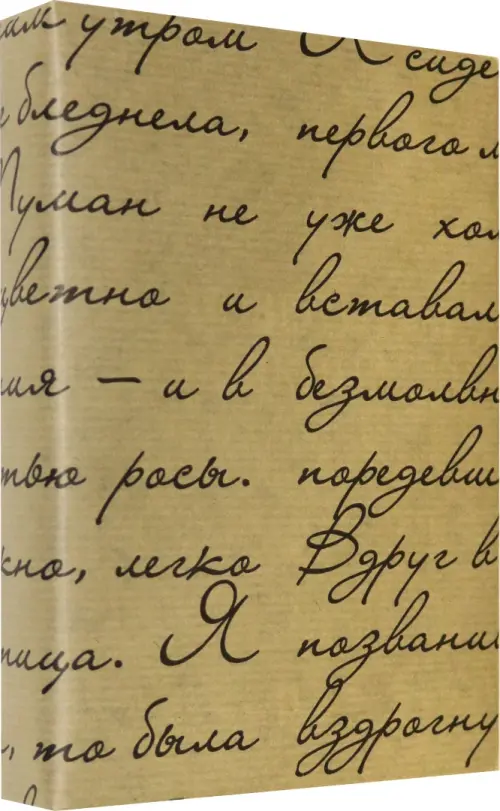 утром Я сиде
бледнела, первого
Туман не уже хол
цветно и вставал
ния – и в безмолвн
тью росы. поредевш
жно, легко Вдруг в
тица. Я позвани
, то была вздрогну